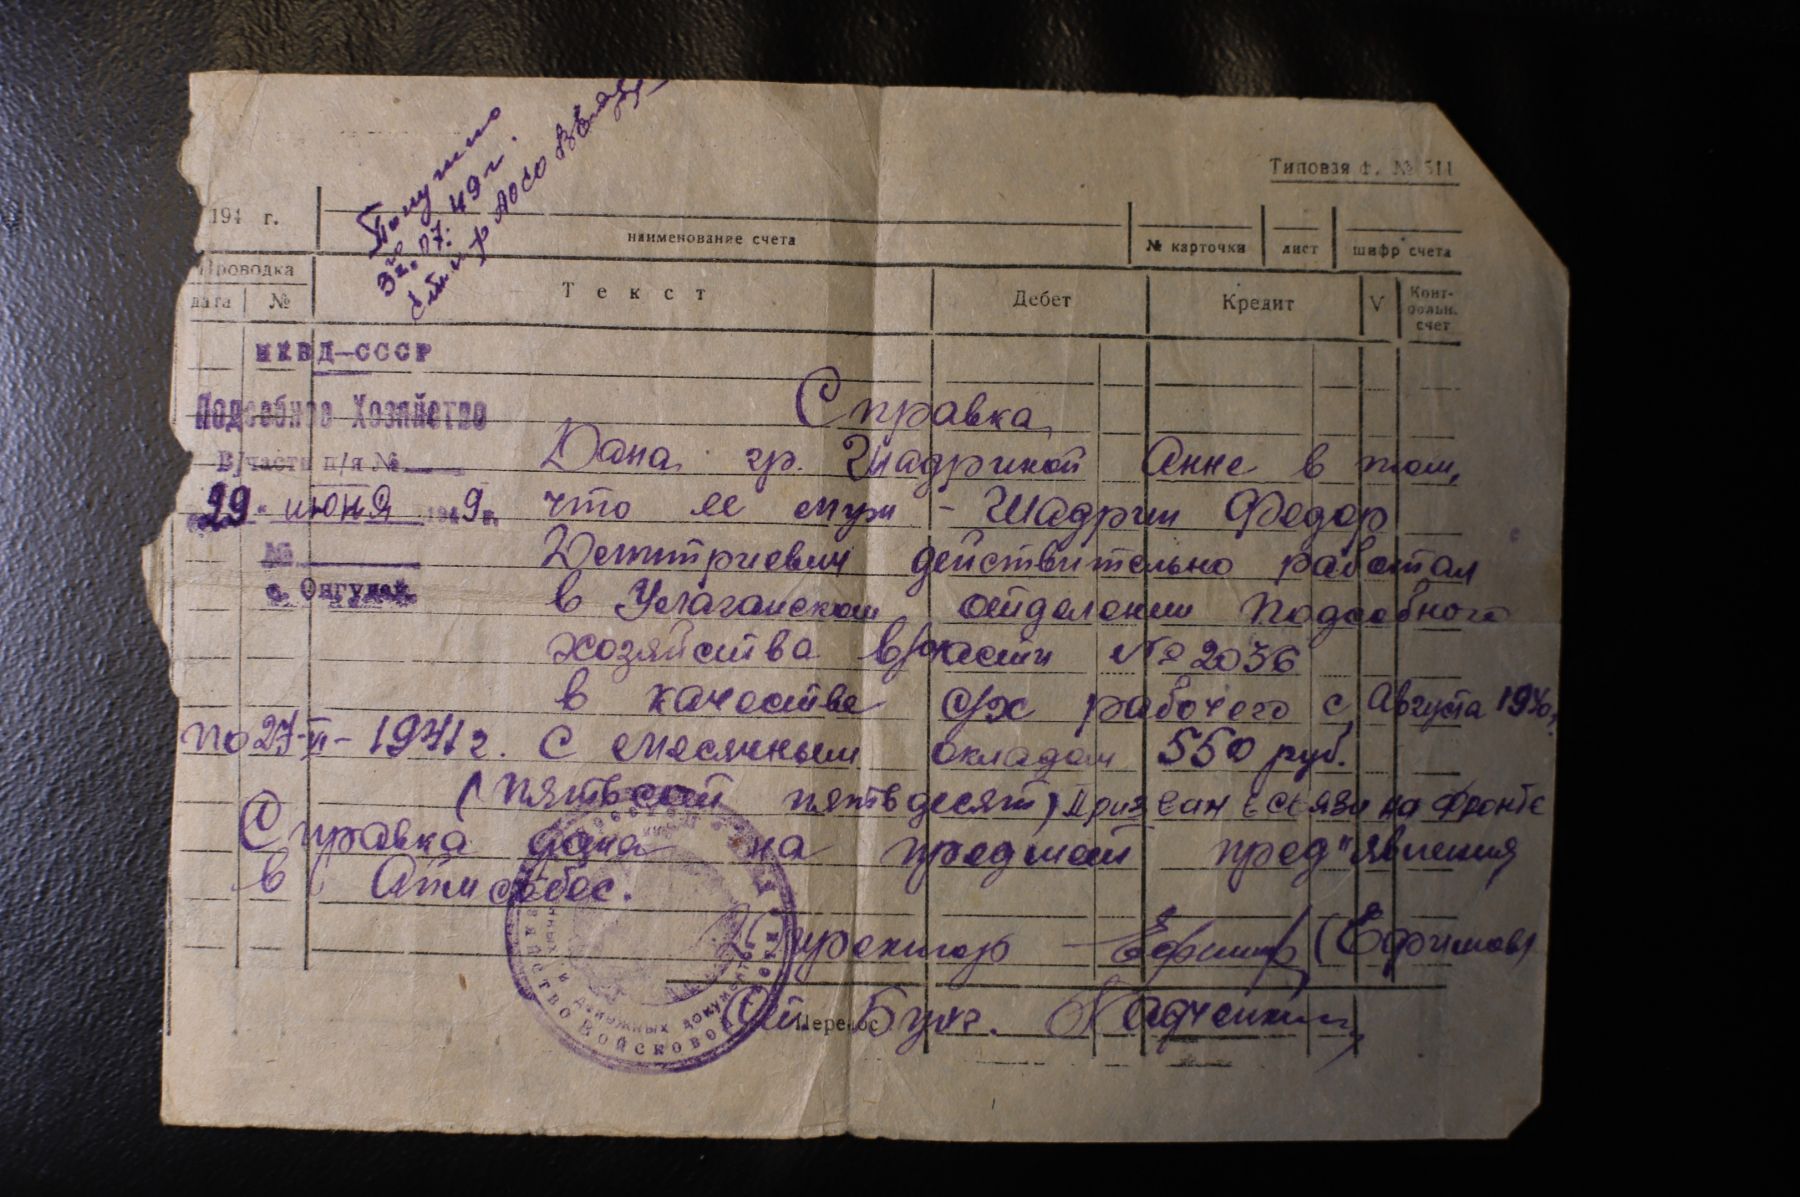 Типовая ф. № 511
194 г.
наименование счета
№ карточки лист шифр счета
Проводка
дата № Текст Дебет Кредит V Контрольн. счет
Получено
30.07.49г.
НКВД—СССР
Подсобное Хозяйство
В/части п/я №
29 июня 1949г.
№
с. Онгудай
Справка
Дана гр. Шадриной Анне в том,
что ее муж - Шадрин Федор
Дмитриевич действительно работал
в Улаганском отделении Подсобного
хозяйства в/части № 2036
в качестве с/х рабочего с Августа 1940г.
по 27-VI-1941г. с месячным окладом 550 руб.
(пятьсот пятьдесят) призван в связи на фронте
Справка дана на предмет пред"явления
в Отмсобес.
Директор Ефимов (Ефимов)
Перенос
Ст Бух.
денежных документов
войсково